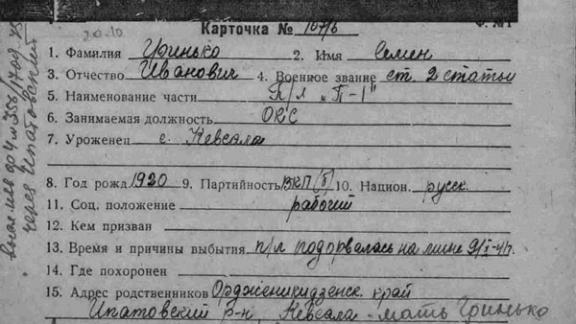 20.10
Карточка № 1077б
Ф. № 1
1. Фамилия Гринько 2. Имя Семен
3. Отчество Иванович 4. Военное звание ст. 2 статьи
5. Наименование части П/л „П-1"
6. Занимаемая должность ОКС
7. Уроженец с. Кевсала
8. Год рожд 1920 9. Партийность ВКП(б) 10. Национ. русск.
11. Соц. положение рабочий
12. Кем призван
13. Время и причины выбытия п/л подорвалась на мине 9/X-41г.
14. Где похоронен
15. Адрес родственников Орджоникидзенск. край
Ипатовский р-н, Кевсала - мать Гринько
через Ипатовский